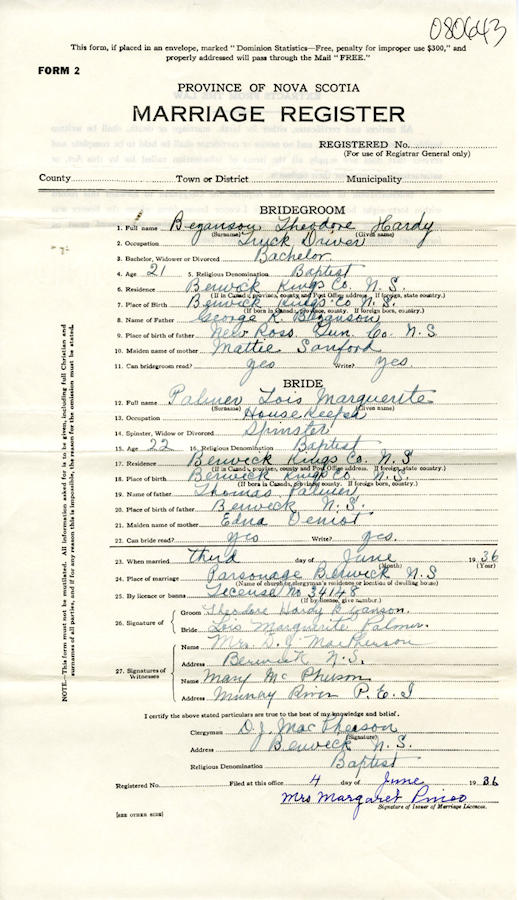 080643
This form, if placed in an envelope, marked "Dominion Statistics—Free, penalty for improper use $300," and
properly addressed will pass through the Mail "FREE."
FORM 2
PROVINCE OF NOVA SCOTIA
MARRIAGE REGISTER
REGISTERED No.
(For use of Registrar General only)
County Town or District Municipality
BRIDEGROOM
1. Full name Beganson Theodore Hardy
(Surname) (Given name)
2. Occupation Truck Driver
3. Bachelor, Widower or Divorced Bachelor
4. Age 21 5. Religious Denomination Baptist
6. Residence Berwick Kings Co. N.S.
(If in Canada, province, county and Post Office address. If foreign, state country.)
7. Place of Birth Berwick Kings Co N.S.
(If born in Canada, province, county. If foreign born, country.)
8. Name of Father George R. Beganson
9. Place of birth of father New Ross. Lun. Co. N.S
10. Maiden name of mother Mattie Sanford
11. Can bridegroom read? yes Write? yes.
BRIDE
12. Full name Palmer Lois Marguerite
(Surname) (Given name)
13. Occupation House Keeper
14. Spinster, Widow or Divorced Spinster
15. Age 22 16. Religious Denomination Baptist
17. Residence Berwick Kings Co. N.S
(If in Canada, province, county and Post Office address. If foreign, state country.)
18. Place of birth Berwick Kings Co. N.S.
(If born in Canada, province, county. If foreign born, country.)
19. Name of father Thomas Palmer
20. Place of birth of father Berwick N.S.
21. Maiden name of mother Edna
22. Can bride read? yes Write? yes.
23. When married third day of June 1936
(Month) (Year)
24. Place of marriage Parsonage Berwick N.S
(Name of church or clergyman's residence or location of dwelling house)
25. By licence or banns License No 34148
(If by license, give number.)
26. Signature of Groom Theodore Hardy Beganson.
Bride Lois Marguerite Palmer.
27. Signatures of Witnesses Name Mrs D. J. MacPherson
Address Berwick N.S.
Name Mary McPherson
Address Murray River P.E.I
I certify the above stated particulars are true to the best of my knowledge and belief.
Clergyman D.J. MacPherson
(Signature)
Address Berwick N.S.
Religious Denomination Baptist
Registered No. Filed at this office 4 day of June 1936
Mrs Margaret Pineo
Signature of Issuer of Marriage Licences.
[SEE OTHER SIDE]
NOTE.—This form must not be mutilated. All information asked for is to be given, including full Christian and
surnames of all parties, and if for any reason this is impossible, the reason for the omission must be stated.